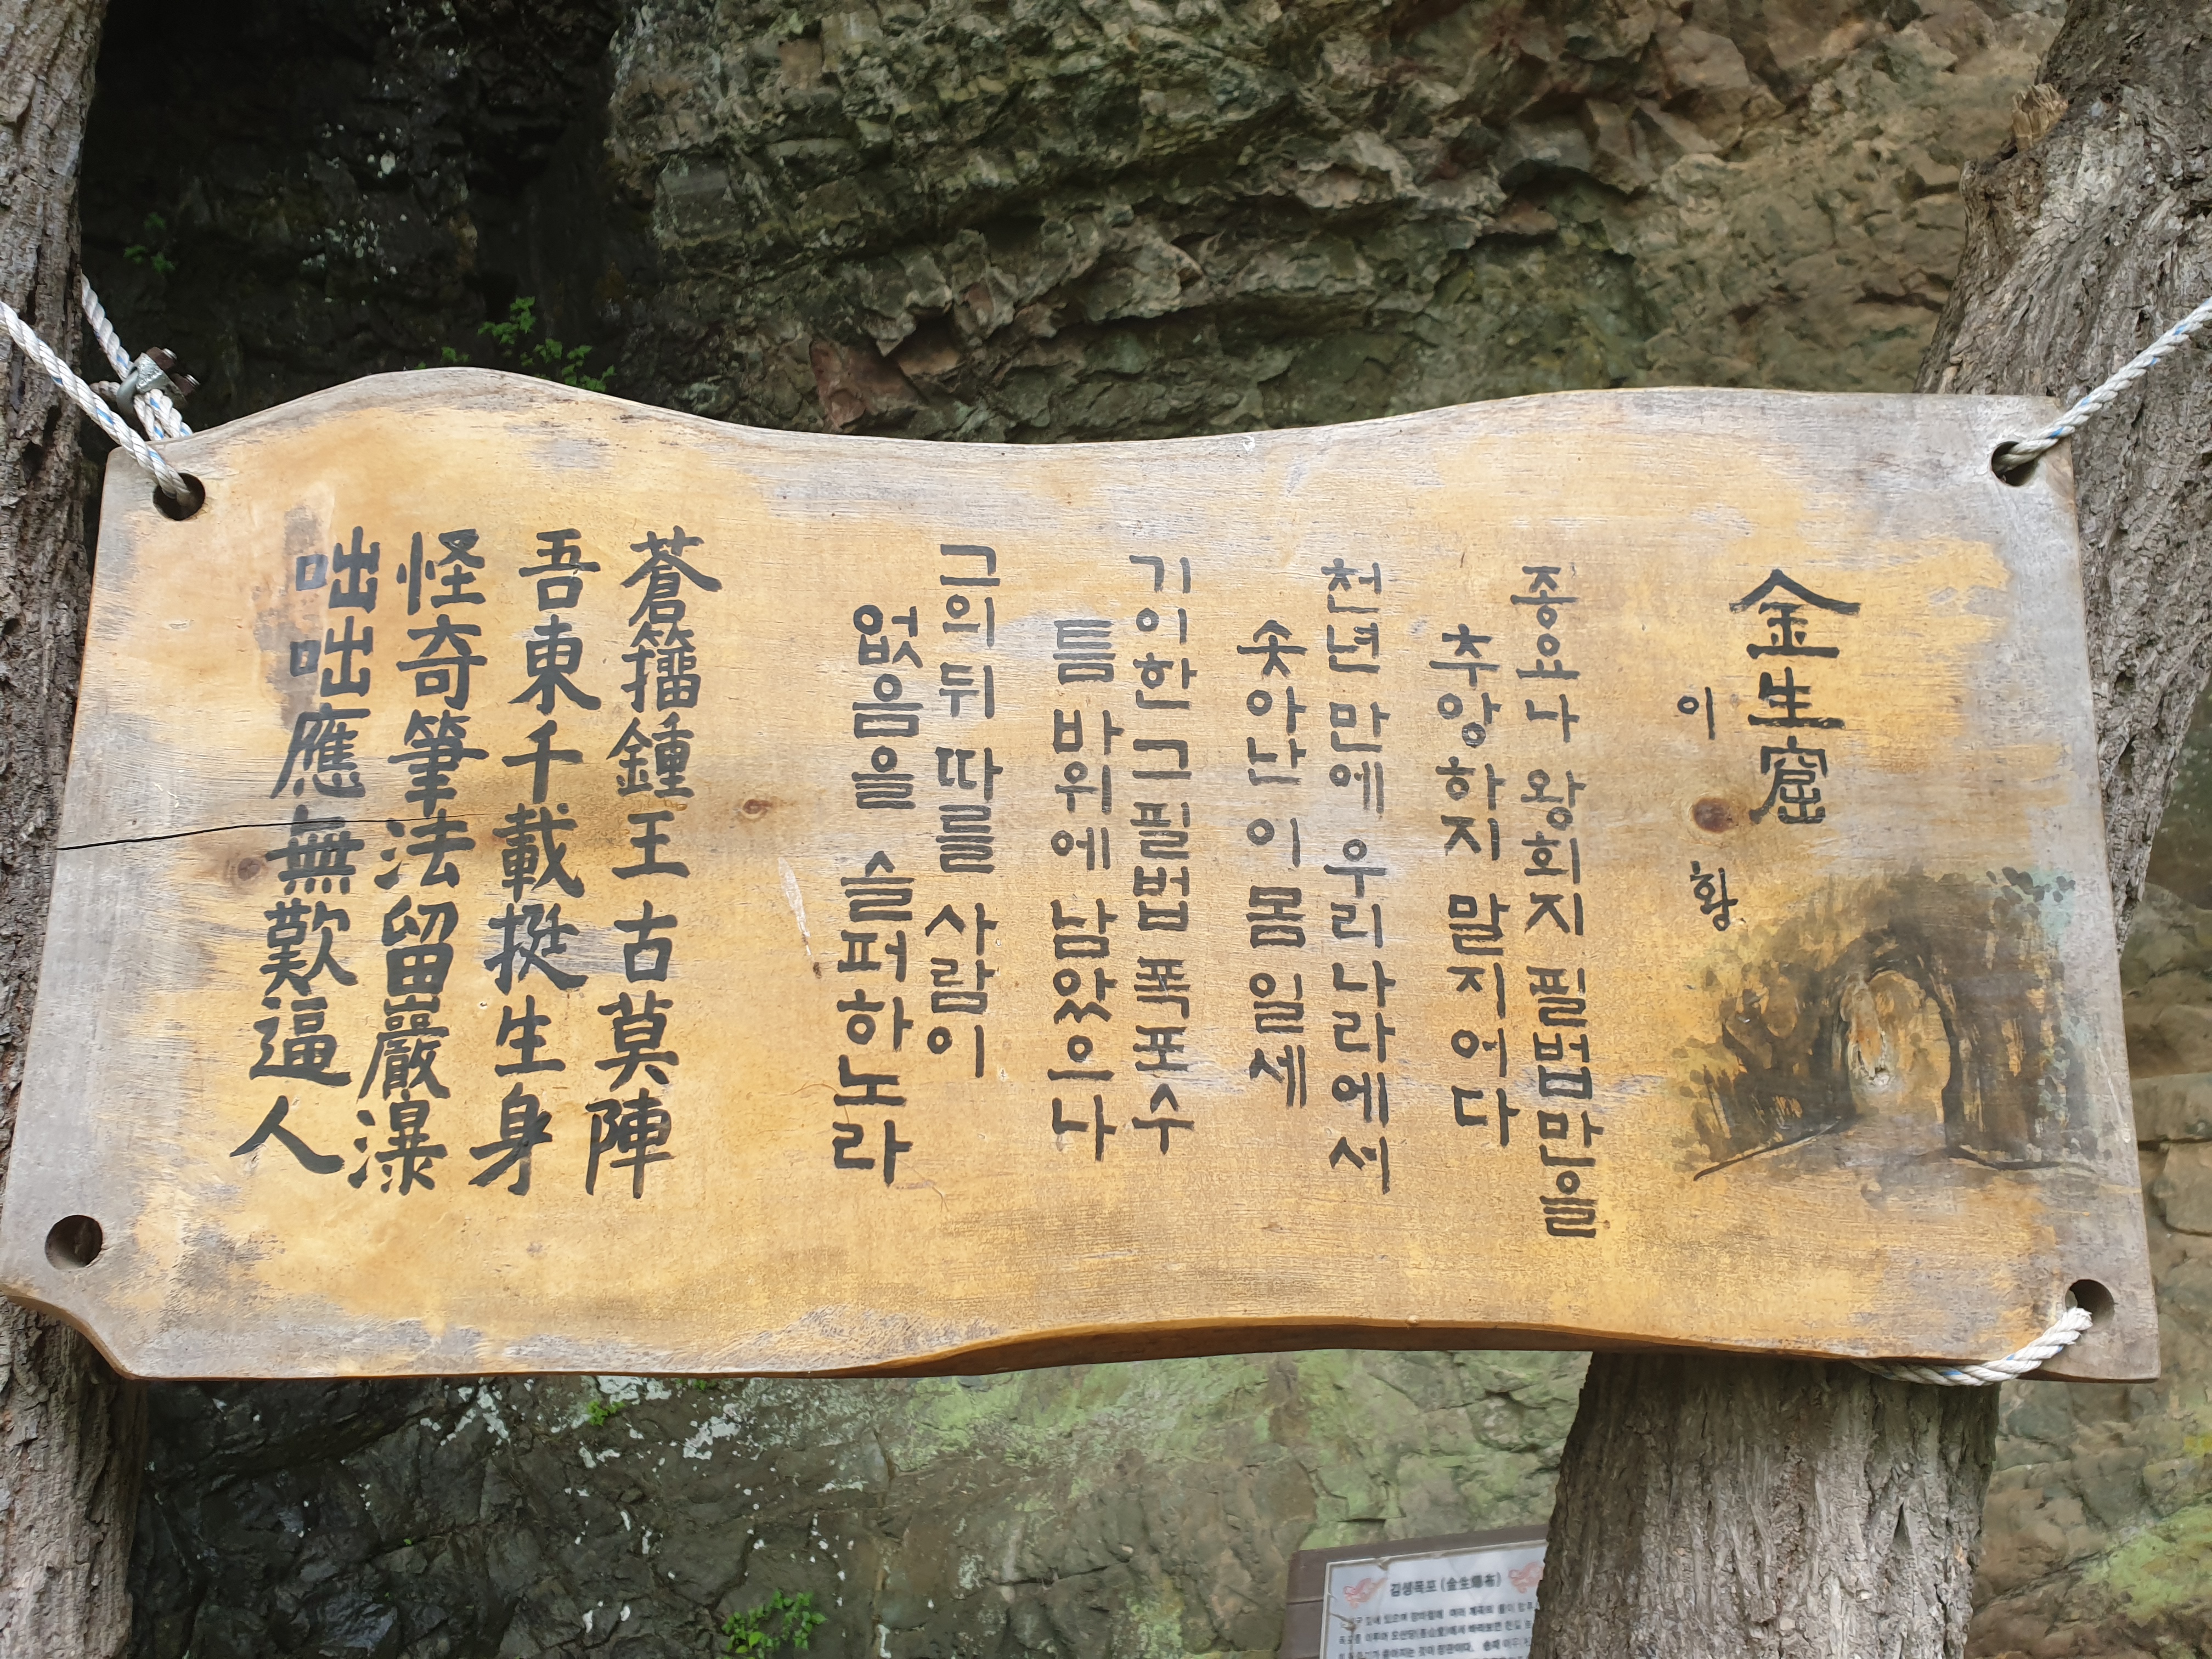 金生窟
이 황
종요나 왕희지 필법만을
추앙하지 말지어다
천년 만에 우리나라에서
솟아난 이 몸일세
기이한 그 필법 폭포수
틈 바위에 남았으나
그의 뒤 따를 사람이
없음을 슬퍼하노라
蒼籒鍾王古莫陣
吾東千載挺生身
怪奇筆法留巖瀑
咄咄應無歎逼人
김생폭포 (金生瀑布)